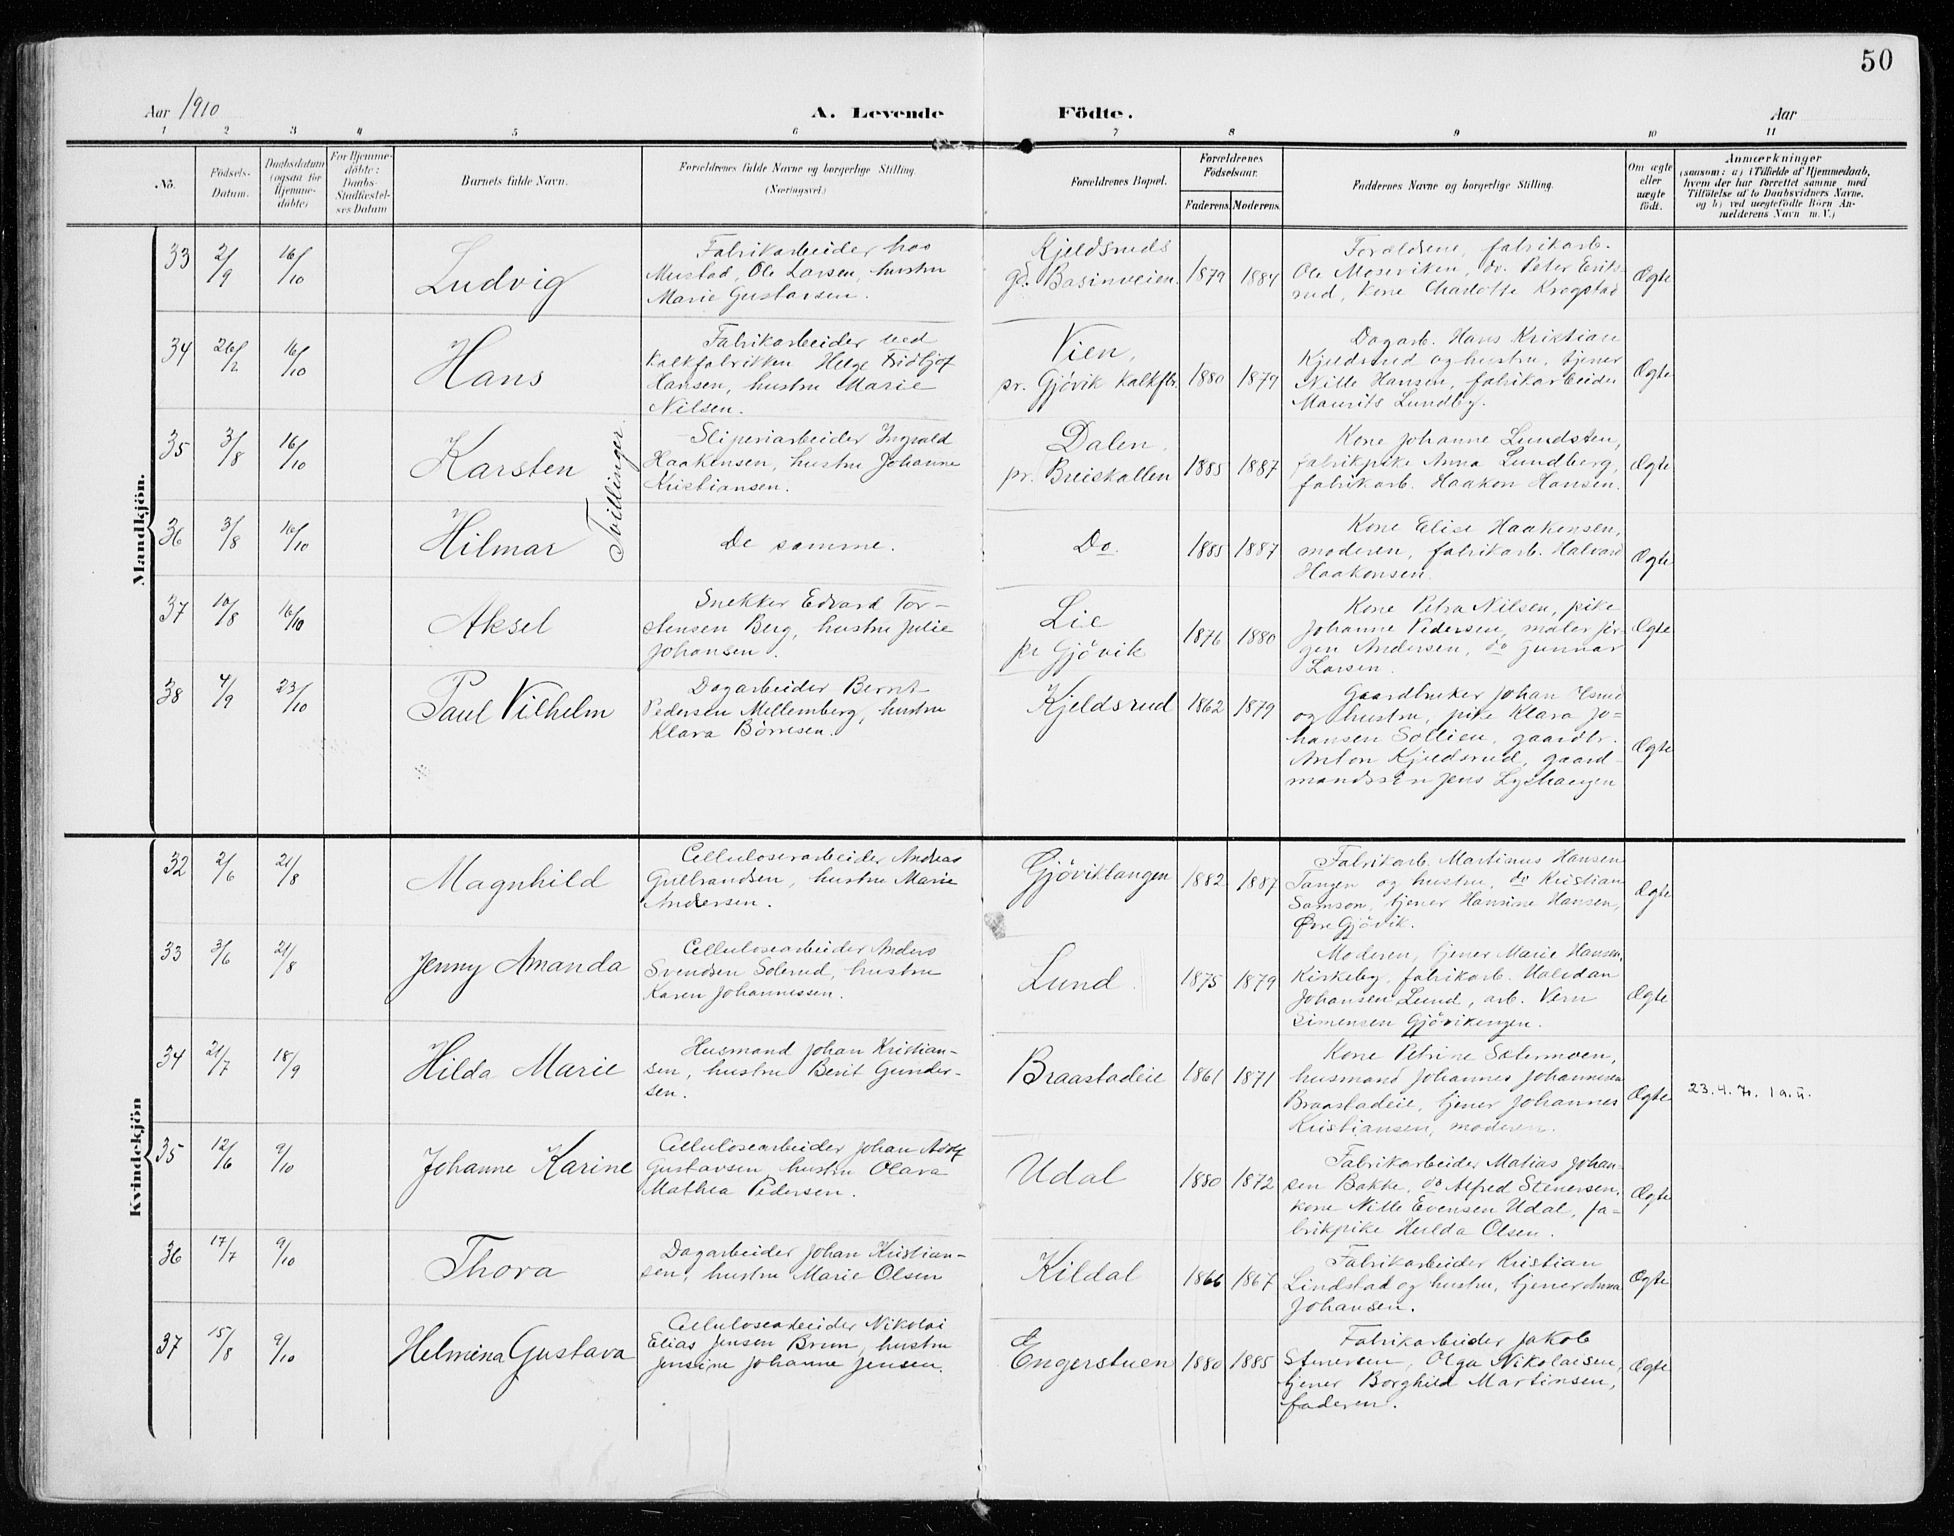 50
Aar 1910
A. Levende Födte.
Aar
1 2 3 4 5 6 7 8 9 10 11
No.
Födsels-
Datum.
Daabsdatum
(ogsaa for
Hjemme-
döbte)
For Hjemme-
döbte:
Daabs-
Stadfæstel-
ses Datum
Barnets fulde Navn.
Forældrenes fulde Navne og borgerlige Stilling.
(Næringsvei.)
Forældrenes Bopæl.
Forældrenes
Födselsaar.
Faderens. Moderens.
Faddernes Navne og borgerlige Stilling.
Om ægte
eller
uægte
födt.
Anmærkninger
(saasom: a) i Tilfælde af Hjemmedaab,
hvem der har forrettet samme med
Tilföielse af to Daabsvidners Navne,
og b) ved uægtefödte Börn An-
melderens Navn m. V.)
Mandkjön.
33 2/9 16/10 Ludvig
Fabrikarbeider hos
Mustad, Ole Larsen, hustru
Marie Gustavsen.
Kjeldsruds
gd. Basinveien. 1879 1884
Forældrene, fabrikarb.
Ole Moseviken, do. Peter Eriks-
rud, kone Charlotte Krogstad
Ægte
34 26/2 16/10 Hans
Fabrikarbeider ved
Kalkfabrikken Helge Fridtjof
Hansen, hustru Marie
Nilsen.
Vien,
pr. Gjövik Kalkfbr. 1880 1879
Dagarb. Hans Kristian
Kjeldsrud og hustru, tjener
Nille Hansen, fabrikarbeider
Maurits Lundby.
Ægte
35 3/8 16/10 Karsten
Tvillinger.
Sliperiarbeider Ingvald
Haakensen, hustru Johanne
Kristiansen.
Dalen.
pr. Breiskallen 1885 1887
Kone Johanne Lundsten,
fabrikpike Anna Lundberg,
fabrikarb. Haakon Hansen.
Ægte
36 3/8 16/10 Hilmar
De samme.
Do. 1885 1887
Kone Elise Haakensen,
moderen, fabrikarb. Halvard
Haakonsen.
Ægte
37 10/8 16/10 Aksel
Snekker Edvard Tor-
stensen Berg, hustru Julie
Johansen.
Lie
pr Gjövik 1876 1880
Kone Petra Nilsen, pike
Johanne Pedersen, maler Jör-
gen Andersen, do Gunnar
Larsen.
Ægte
38 4/9 23/10 Paul Vilhelm
Dagarbeider Bernt
Pedersen Mellemberg, hustru
Klara Börresen.
Kjeldsrud 1862 1879
Gaardbruker Johan
og hustru, pike Klara Jo-
hansen Sollien, gaardbr.
Anton Kjeldsrud, gaard-
mandssön Jens Lyshaugen
Ægte
Kvindekjön
32 2/6 21/8 Magnhild
Celluloserarbeider Andreas
Gulbrandsen, hustru Marie
Andersen.
Gjöviktangen 1882 1887
Fabrikarb. Martinus Hansen
Tangen og hustru, do Kristian
Samson, tjener Hansine Hansen,
Øvre Gjövik.
Ægte
33 3/6 21/8 Jenny Amanda
Cellulosearbeider Anders
Svendsen Solerud, hustru
Karen Johannessen.
Lund. 1875 1879
Moderen, tjener Marie Hansen
Kirkeby, fabrikarb. Halvdan
Johansen Lund, arb. Vern
Simensen Gjövikengen.
Ægte
34 21/7 18/9 Hilda Marie
Husmand Johan Kristian-
sen, hustru Berit Gunder-
sen.
Braastadeie 1861 1871
Kone Petrine Sætermoen,
husmand Johannes Johannesen
Braastadeie, tjener Johannes
Kristiansen, moderen.
Ægte
23.4.71. 1 a.u.
35 12/6 9/10 Johanne Karine
Cellulosearbeider Johan Adolf
Gustavsen, hustru Olava
Mathea Pedersen.
Udal 1880 1872
Fabrikarbeider Matias Johan-
sen Bakke, do Alfred Stenersen,
kone Nille Evensen Udal, fa-
brikpike Hulda Olsen.
Ægte
36 17/7 9/10 Thora
Dagarbeider Johan Kristian-
sen, hustru Marie Olsen
Kildal 1866 1867
Fabrikarbeider Kristian
Lindstad og hustru, tjener Anna
Johansen.
Ægte
37 15/8 9/10 Helmina Gustava
Cellulosearbeider Nikolai
Elias Jensen Brun, hustru
Jensine Johanne Jensen.
Engerstuen 1880 1885
Fabrikarbeider Jakob
Olga Nikolaisen,
tjener Borghild Martinsen,
faderen.
Ægte